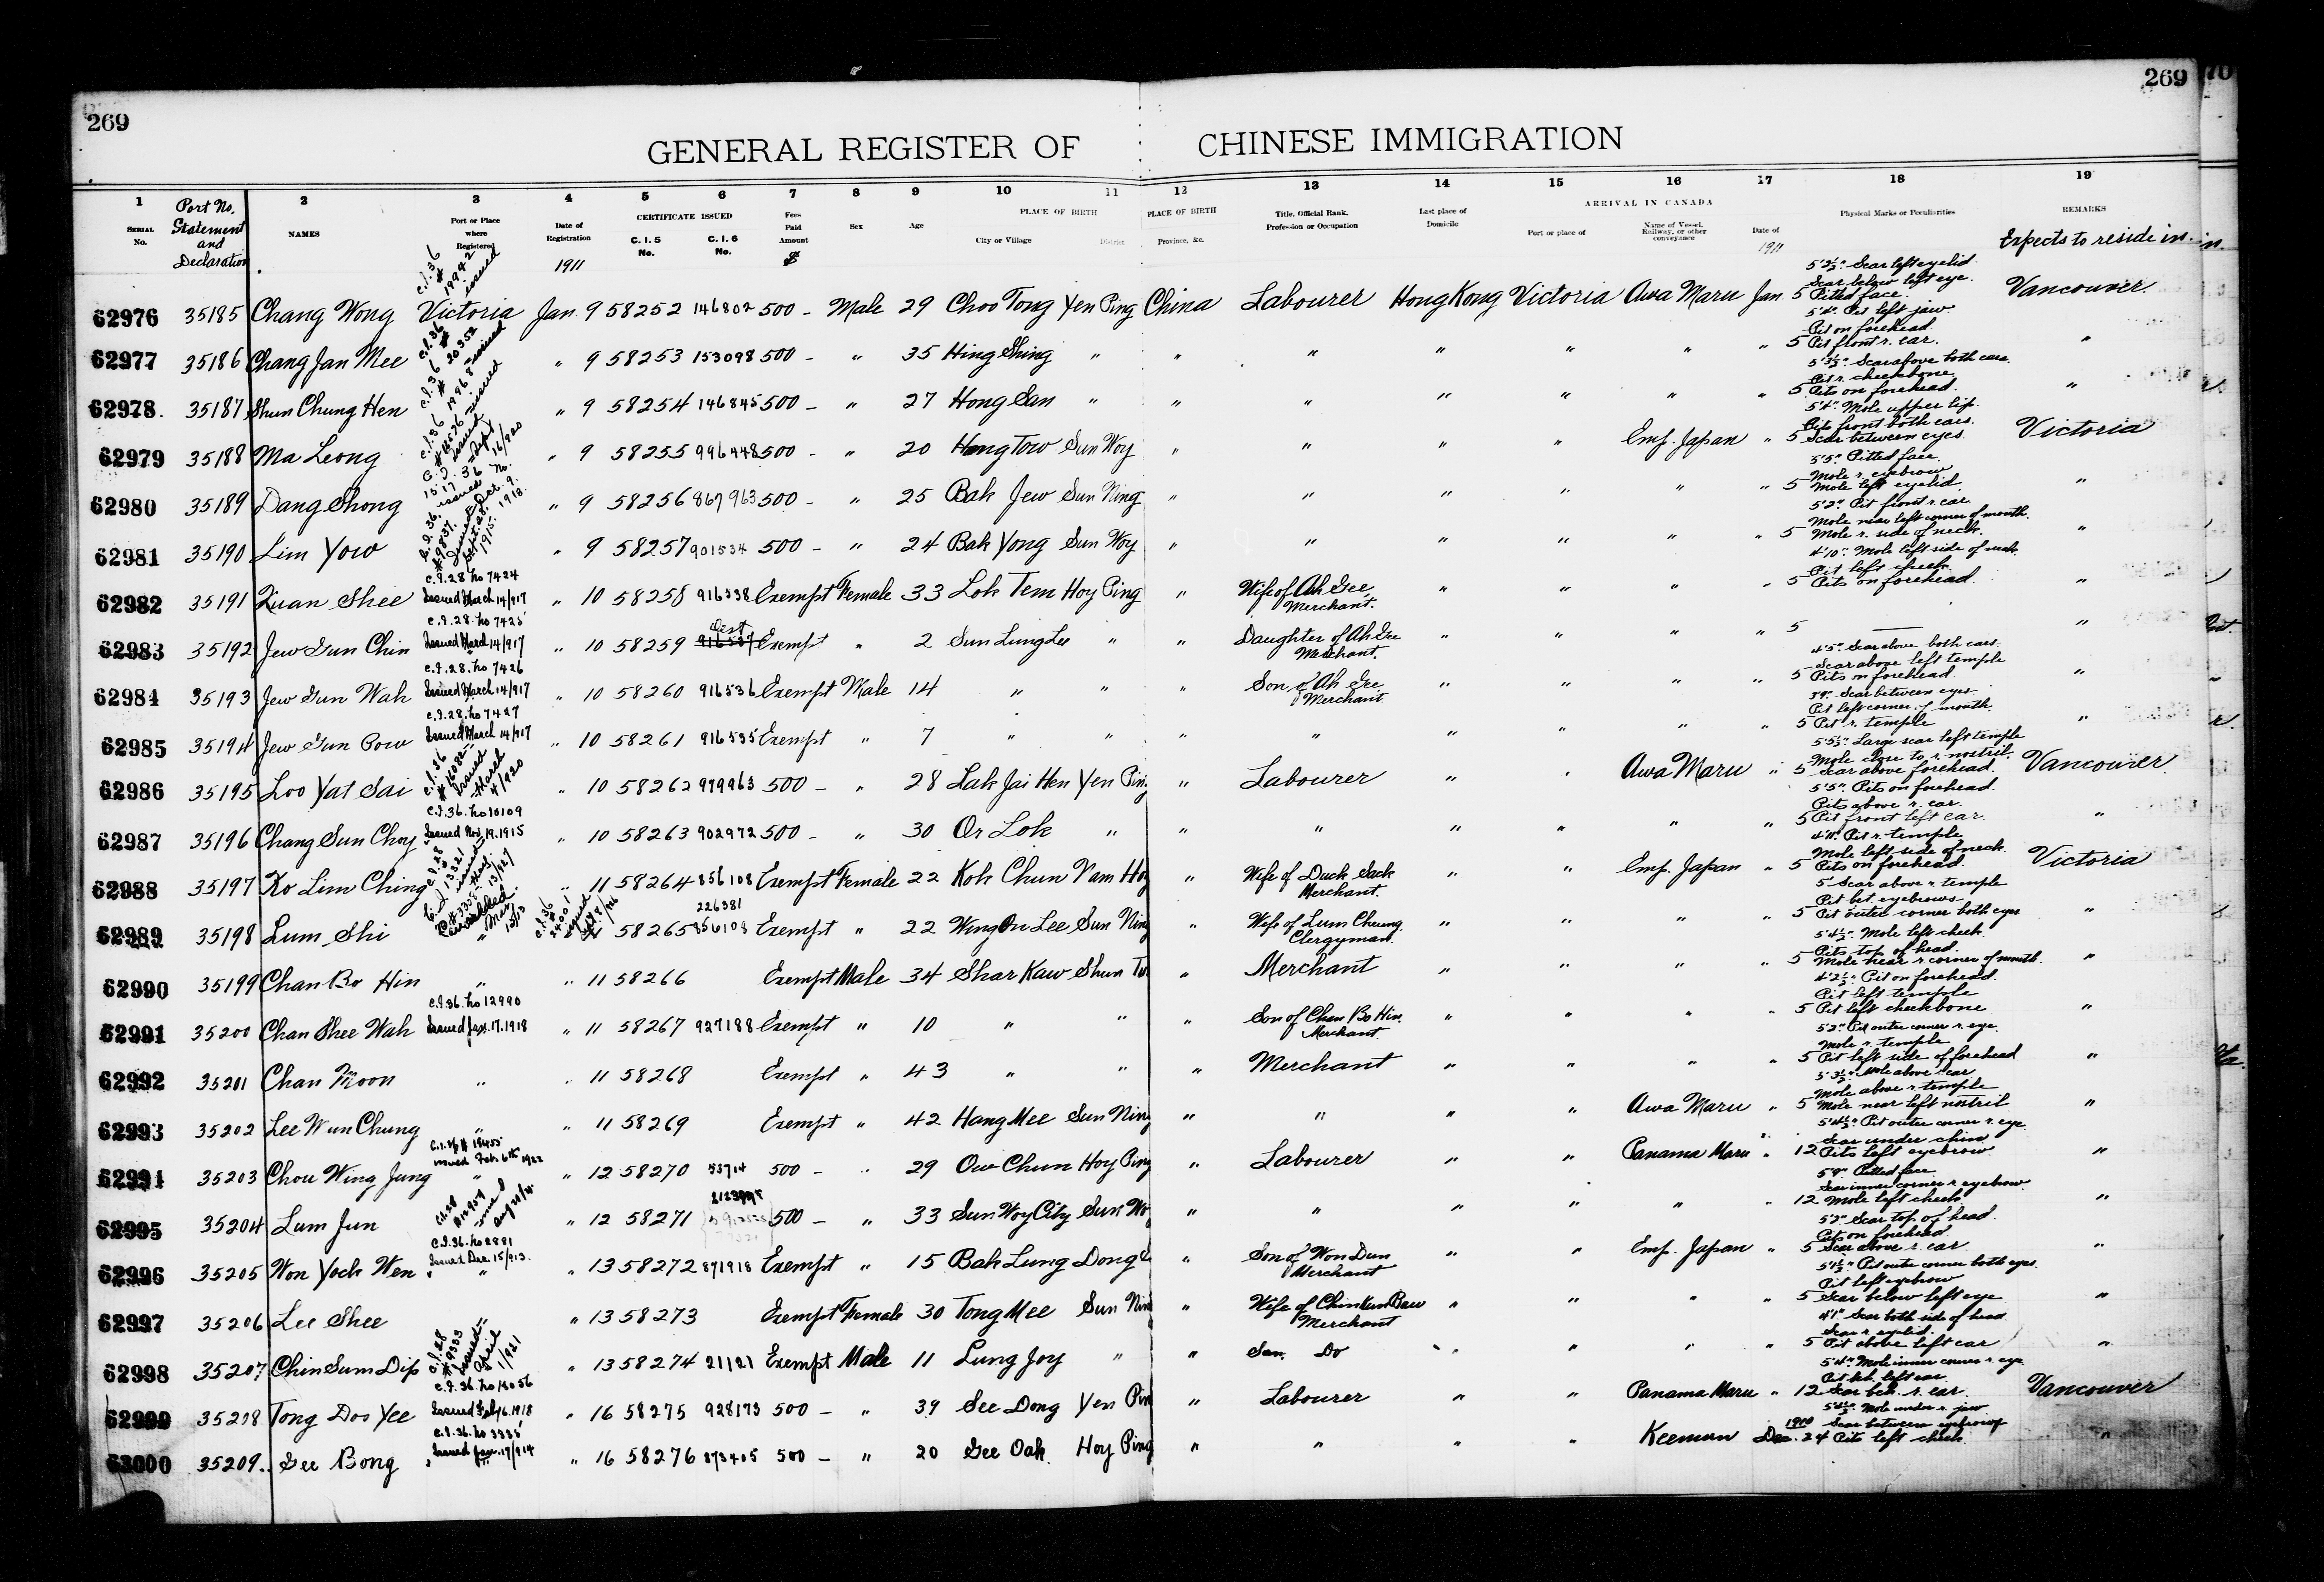 269
269
GENERAL REGISTER OF CHINESE IMMIGRATION
1 2 3 4 5 6 7 8 9 10 11 12 13 14 15 16 17 18 19
SERIAL No. Port No. Statement and Declaration NAMES Port or Place where Registered Date of Registration CERTIFICATE ISSUED C. I. 5 No. C. I. 6 No. Fees Paid Amount $ Sex Age PLACE OF BIRTH City or Village District PLACE OF BIRTH Province, &c. Title, Official Rank, Profession or Occupation Last place of Domicile ARRIVAL IN CANADA Port or place of Name of Vessel, Railway, or other conveyance Date of Physical Marks or Peculiarities REMARKS
1911 1911 Expects to reside in
62976 35185 Chang Wong Victoria Jan. 9 58252 146802 500 - Male 29 Choo Tong Yen Ping China Labourer Hong Kong Victoria Awa Maru Jan 5 Scar left eyelid Scar below left eye. Pitted face. Vancouver
62977 35186 Chang Jan Mee " 9 58253 153098 500 - " 35 Hing Shing " " " " " " " 5 5'4" Pit left jaw Pit on forehead. Pit front r. ear. "
62978 35187 Shun Chung Hen " 9 58254 146845 500 - " 27 Hong San " " " " " " " 5 5'3½" Scar above both ears. Pit r. cheekbone Pits on forehead. "
62979 35188 Ma Leong " 9 58255 996448 500 - " 20 Hong Tow Sun Woy " " " " Emp. Japan " 5 5'4" Mole upper lip. Pits front both ears. Scar between eyes. Victoria
62980 35189 Dang Shong " 9 58256 867963 500 - " 25 Bak Jew Sun Ning " " " " " " 5 5'5" Pitted face. Mole r. eyebrow Mole left eyelid. "
62981 35190 Lim Yow " 9 58257 901534 500 - " 24 Bak Yong Sun Woy " " " " " " 5 5'2" Pit front r. ear Mole near left corner of mouth. Mole r. side of neck. "
62982 35191 Quan Shee C.I.28 No 7424 Issued March 14/917 " 10 58258 916538 Exempt Female 33 Lok Tem Hoy Ping " Wife of Ah Gee Merchant. " " " " 5 4'10" Mole left side of neck. Pit left cheek. Pits on forehead. "
62983 35192 Jew Gun Chin C.I.28. No 7425 Issued March 14/917 " 10 58259 916537 Exempt " 2 Sun Lung Lee " " Daughter of Ah Gee Merchant. " " " " 5 — "
62984 35193 Jew Gun Wah C.I.28. No 7426 Issued March 14/917 " 10 58260 916536 Exempt Male 14 " " " Son of Ah Gee Merchant. " " " " 5 4'5" Scar above both ears. Scar above left temple Pits on forehead. "
62985 35194 Jew Gun Pow C.I.28. No 7427 Issued March 14/917 " 10 58261 916535 Exempt " 7 " " " " " " " " 5 3'9" Scar between eyes Pit left corner of mouth. Pit r. temple "
62986 35195 Loo Yat Sai " 10 58262 979963 500 - " 28 Lak Jai Hen Yen Ping " Labourer " " Awa Maru " 5 5'5½" Large scar left temple Mole close to r. nostril. Scar above forehead. Vancouver
62987 35196 Chang Sun Choy C.I.36. No 10109 Issued Nov. 19. 1915 " 10 58263 902972 500 - " 30 Or Lok " " " " " " " 5 5'5" Pits on forehead. Pits above r. ear. Pit front left ear. "
62988 35197 Ko Lim Ching " 11 58264 856108 Exempt Female 22 Kok Chun Nam Hoy " Wife of Duck Sack Merchant. " " Emp. Japan " 5 4'11" Pit r. temple Mole left side of neck. Pits on forehead. Victoria
62989 35198 Lum Shi " 11 58265 226381 856108 Exempt " 22 Wing On Lee Sun Ning " Wife of Lum Cheung Clergyman. " " " " 5 5' Scar above r. temple Pit bet. eyebrows. Pit outer corner both eyes "
62990 35199 Chan Bo Hin " " 11 58266 Exempt Male 34 Shar Kaw Shun " Merchant " " " " 5 5'4½" Mole left cheek. Pits top of head. Mole near r. corner of mouth. "
62991 35200 Chan Shee Wah C.I.36. No 12990 Issued Jan. 17. 1918 " 11 58267 927188 Exempt " 10 " " " Son of Chan Bo Hin. Merchant. " " " " 5 4'2½" Pit on forehead. Pit left temple Pit left cheekbone "
62992 35201 Chan Moon " " 11 58268 Exempt " 43 " " " Merchant " " " " 5 5'2" Pit outer corner r. eye. Mole r. temple Pit left side of forehead "
62993 35202 Lee Wun Chung " " 11 58269 Exempt " 42 Hang Mee Sun Ning " " " " Awa Maru " 5 5'3½" Mole above r. ear Mole above r. temple Mole near left nostril "
62994 35203 Chou Wing Jung C.I.36 # 18455 issued Feb. 6th 1922 " 12 58270 43714 500 - " 29 Ow Chun Hoy Ping " Labourer " " Panama Maru " 12 5'4½" Pit outer corner r. eye. Scar under chin Pits left eyebrow "
62995 35204 Lum Jun " 12 58271 500 - " 33 Sun Woy City Sun Wo " " " " " " 12 5'9" Pitted face Scar inner corner r. eyebrow. Mole left cheek "
62996 35205 Won Yock Wen C.I.36. No 2881 Issued Dec. 15/913. " 13 58272 871918 Exempt " 15 Bak Lung Dong " Son of Won Dun Merchant " " Emp. Japan " 5 5'2" Scar top of head. Pits on forehead. Scar above r. ear "
62997 35206 Lee Shee " 13 58273 Exempt Female 30 Tong Mee Sun Ning " Wife of Chin Kun Baw Merchant " " " " 5 5'1½" Pit outer corner both eyes. Pit left eyebrow Scar below left eye "
62998 35207 Chin Sum Dip " 13 58274 21121 Exempt Male 11 Lung Joy " " Son. Do " " " " 5 4'1" Scar both side of head Scar r. eyelid. Pit above left ear "
62999 35208 Tong Doo Yee C.I.36. No 13056 Issued Feb 16. 1918 " 16 58275 928173 500 - " 39 See Dong Yen Pin " Labourer " " Panama Maru " 12 5'4" Mole inner corner r. eye Pit beh. left ear. Scar beh. r. ear. Vancouver
63000 35209. Gee Bong C.I.36. No 3335 Issued Jan. 17/914 " 16 58276 873405 500 - " 20 Gee Oak. Hoy Ping " " " " Keemun 1910 Dec. 24 Mole under r. jaw Scar between eyebrows Pits left cheek "